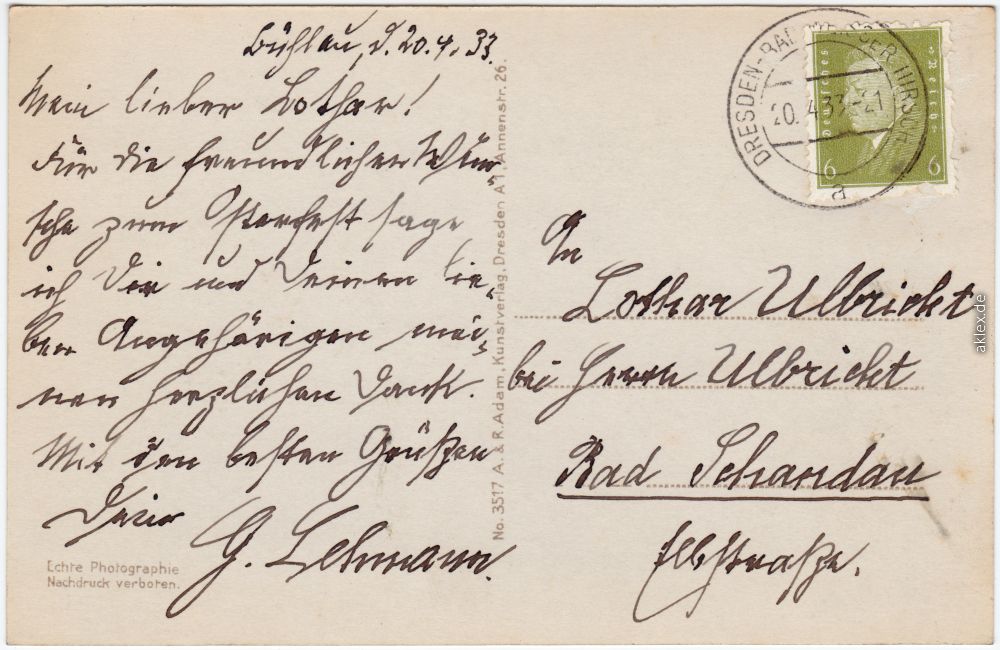 Bühlau, d. 20.4.33.
Mein lieber Lothar!
Für die freundlichen Wün-
sche zum Osterfest sage
ich Dir und Deinen lie-
ben Angehörigen mei-
nen herzlichen Dank.
Mit den besten Grüßen
Dein
G. Lehmann.
Echte Photographie
Nachdruck verboten.
No. 3517 A. & R. Adam, Kunstverlag, Dresden A 1, Annenstr. 26.
DRESDEN-BAD WEISSER HIRSCH
20.4.33.-21
a
Deutsches Reich
6 6
An
Lothar Ulbricht
bei Herrn Ulbricht
Bad Schandau
Elbstraße.
aklex.de